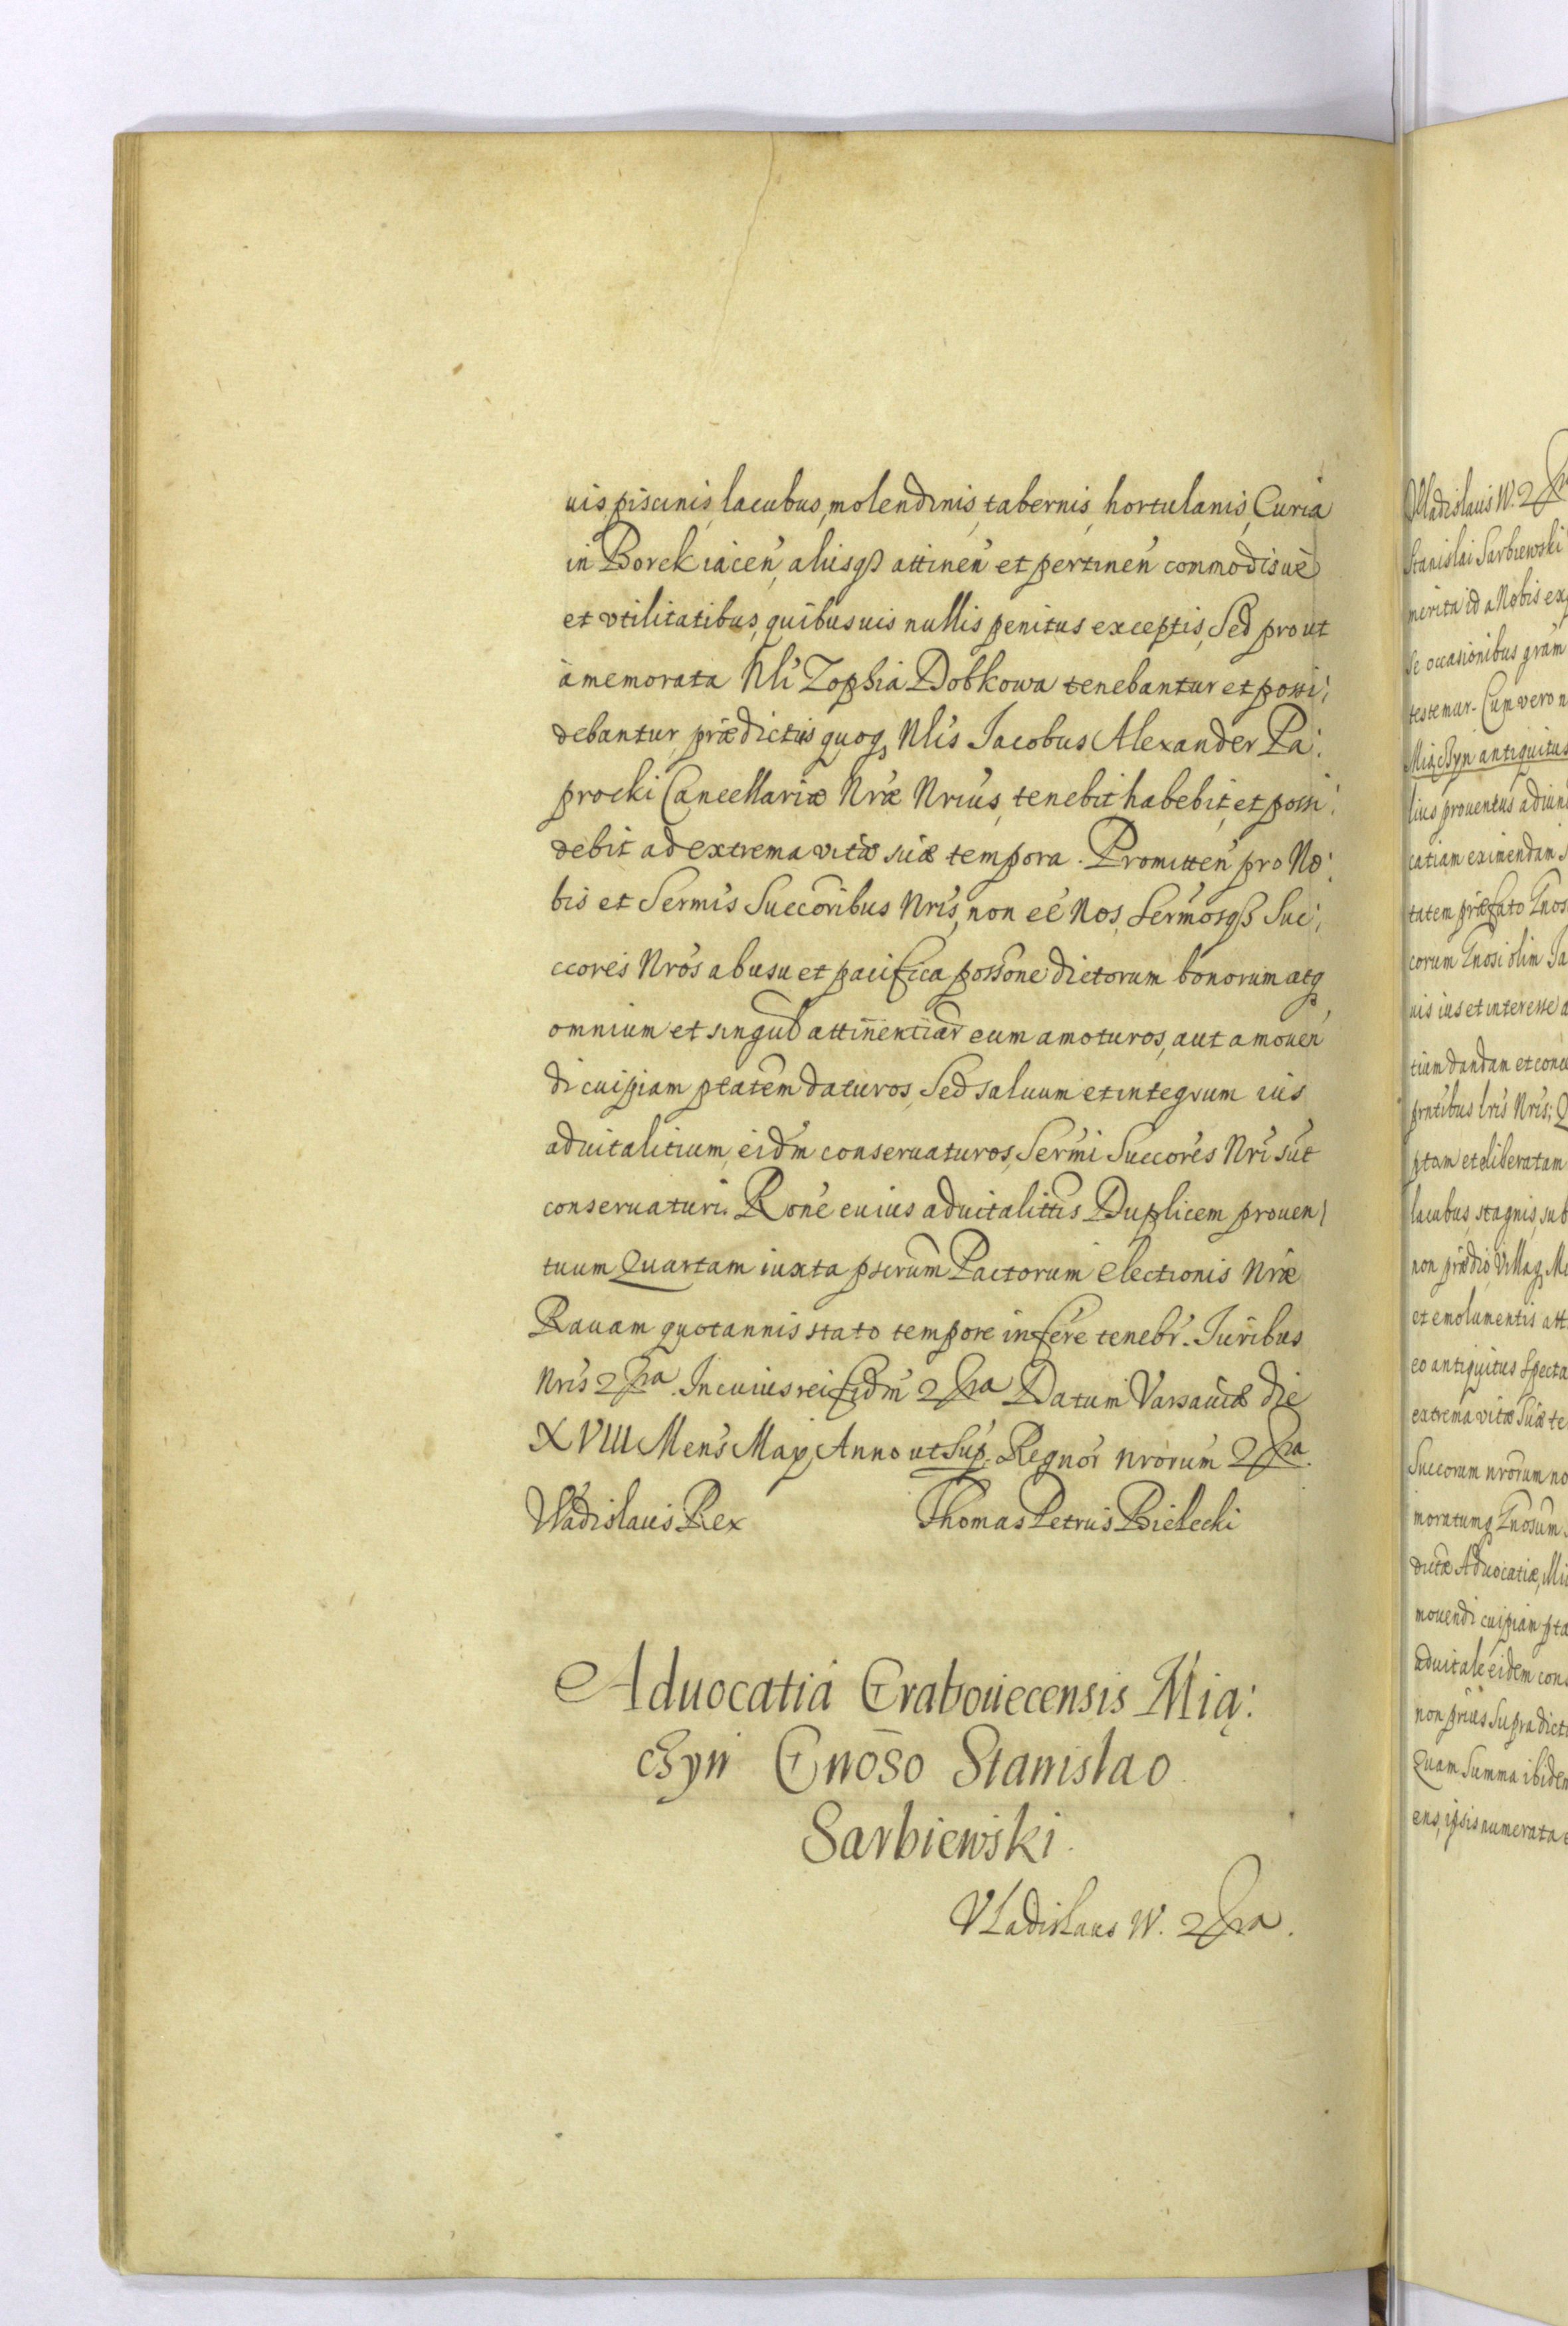 uis, piscinis, lacubus, molendinis, tabernis, hortulanis, Curia
in Borek iacen̄, aliisqß attinen̄ et pertinen̄ commodis uè
et vtilitatibus, quibusuis nullis penitus exceptis, Sed prout
à memorata Nli Zophia Dobkowa tenebantur et possi:
debantur, prædictus quoqꝫ Nlis Jacobus Alexander Pa:
procki Cancellariæ Nræ Nrius, tenebit habebit, et possi:
debit ad extrema vitæ suæ tempora. Promitten̄ pro No:
bis et Sermis Succoribus Nris, non eé Nos, Sermosqß Suc:
ccores Nros ab usu et pacifica possone dictorum bonorum atqꝫ
omnium et singul attinentiar eum amoturos, aut amouen
di cuipiam ptatem daturos, Sed saluum et integrum ius
aduitalitium, eidm conseruaturos, Sermi Succores Nri sut
conseruaturi. Rone cuius aduitalittis Duplicem prouen/
tuum Quartam iuxta pscrum Pactorum electionis Nræ
Rauam quotannis stato tempore inferre tenebr. Iuribus
Nris 2ra. In cuius rei fidm 2ra Datum Varsauiæ die
XVIII Mens Maÿ, Anno ut sup. Regnor nrorum 2ra.
Vladislaus Rex Thomas Petrus Bielecki
Aduocatia Grabouecensis Mią:
czyn Gnoso Stanislao
Sarbiewski.
Vladislaus IV. 2ra.
Vladislaus IV. 2ra
Stanislai Sarbiewski
merita id a Nobis ex
se occasionibus gram
testemur. Cum vero n
Miączyn antiquitus
lius prouentus adiun
catiam eximendam
tatem præfato Gnos
corum Gnosi olim Ja
uis ius et interesse a
tiam dandam et conce
prntibus lris Nris; Q
ptam et deliberatam
lacubus, stagnis, sub
non prædio, Villaqꝫ Mi
et emolumentis att
eo antiquitus specta
extrema vitæ suæ te
Succorum nrorum no
moratumqꝫ Gnosum
dictæ Aduocatiæ, Mi
mouendi cuipiam pta
aduitale eidem cons
non prius supradict
Quam Summa ibidem
ens, ipsis numerata e